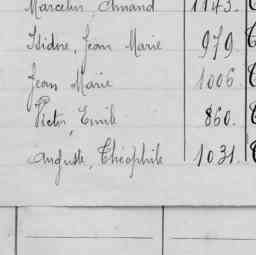 Marcelin, Armand 1143.
Isidore, Jean Marie 979
Jean Marie 1006
Victor, Emile 860.
Auguste, Théophile 1031.